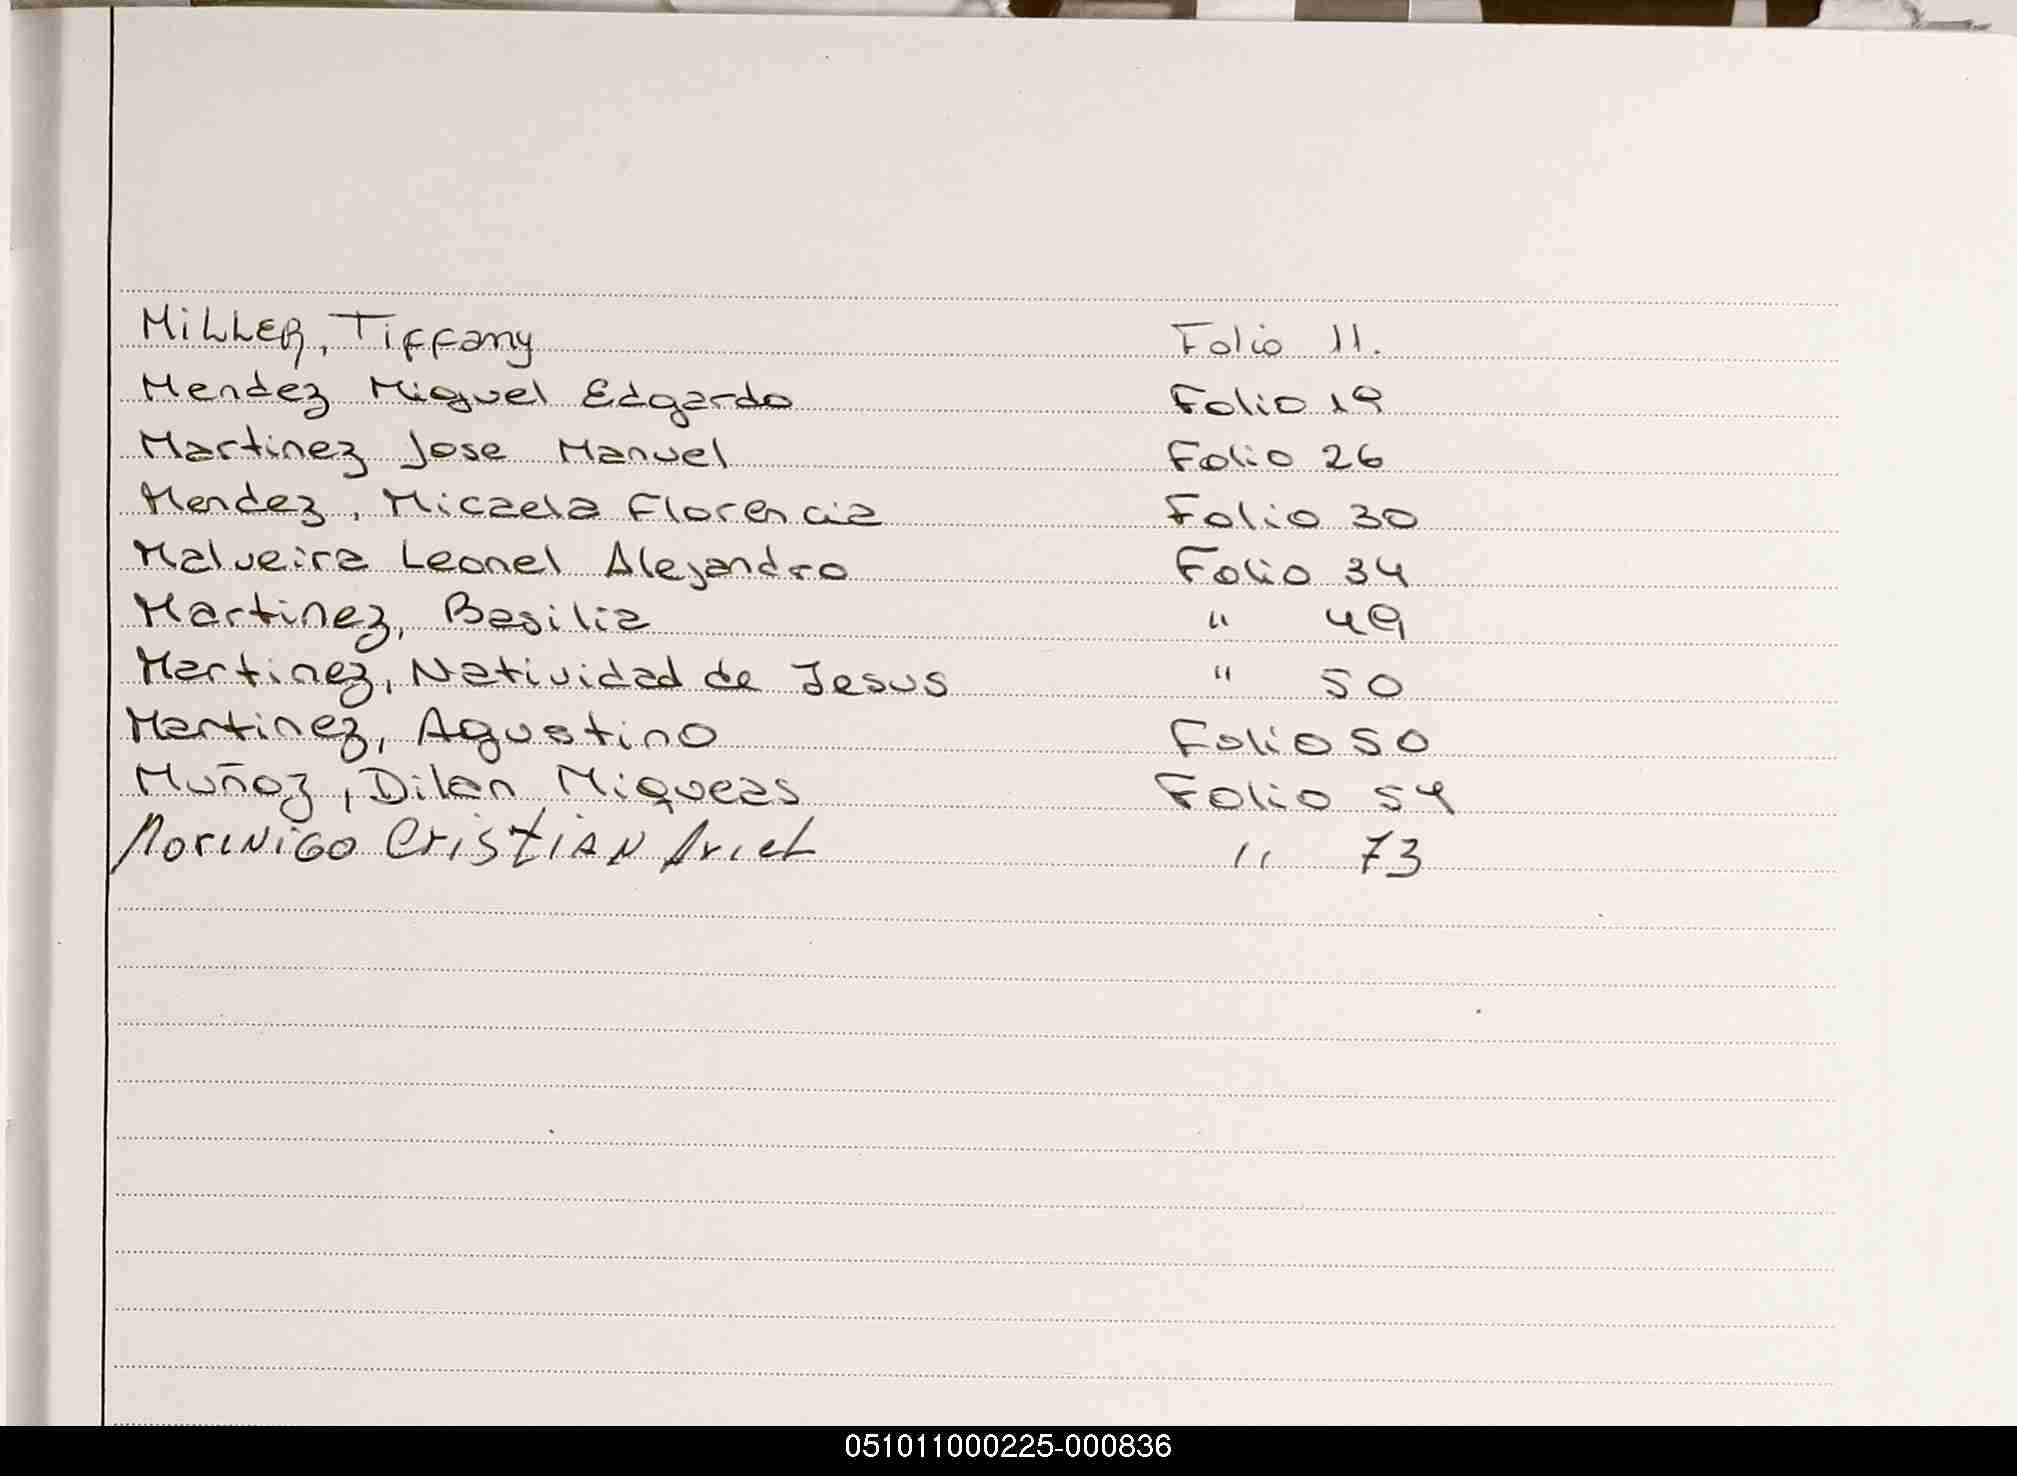 MiLLER, Tiffany Folio 11.
Mendez Miguel Edgardo Folio 19
Martinez Jose Manuel Folio 26
Mendez, Micaela Florencia Folio 30
Malveira Leonel Alejandro Folio 34
Martinez, Basilia " 49
Martinez, Natividad de Jesus " 50
Martinez, Agustino Folio 50
Muñoz, Dilan Miqueas Folio 54
MoriNiGO CristiAN Ariel " 73
051011000225-000836